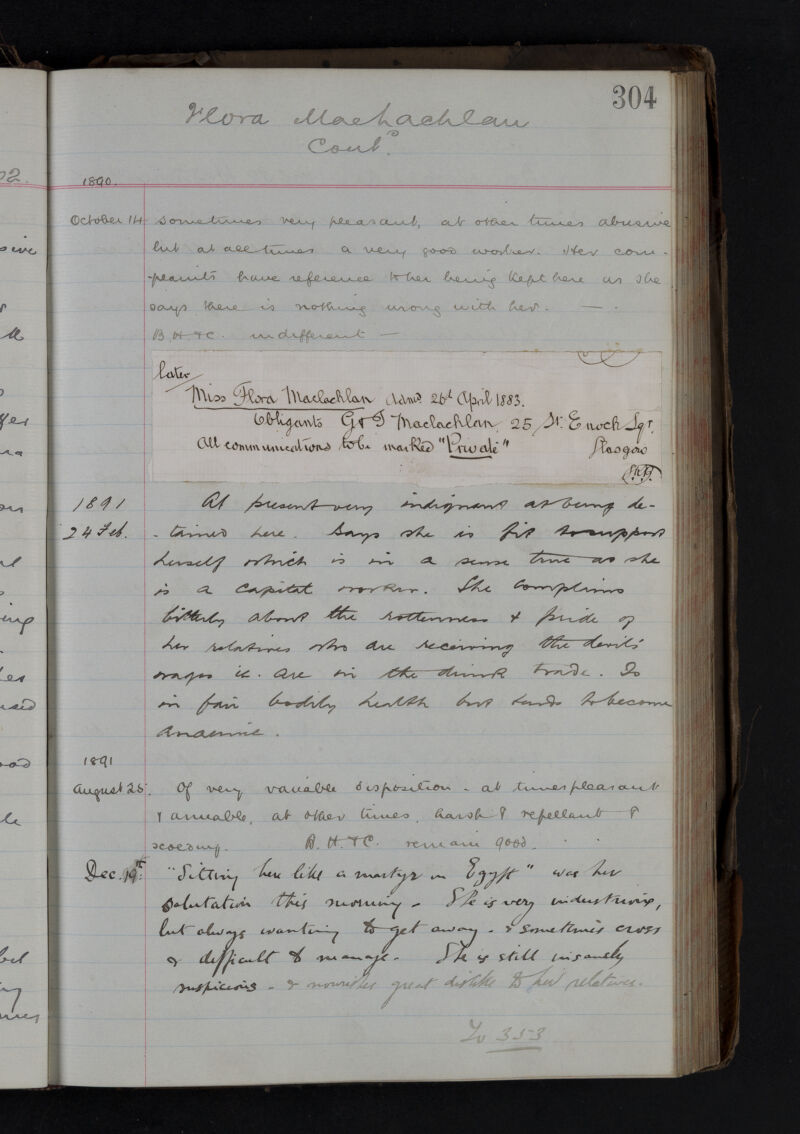 304
Flora MacLachlan
Contd.
1890.
October 14 Sometimes very pleasant, at other times abusive
but at all times a very good worker. Her com-
-plaints have reference to her being kept here as she
says there is nothing wrong with her. —
B. H. & C. indifferent —
later
Miss Flora Maclachlan Admd. 26th April 1883.
Obligants G & D Maclachlan, 25 St. Enoch Sqr.
All communications to be marked "Private" Glasgow
1891 At present very indignant at being de-
24 Feb. -tained here. Says she is fit to support
herself which is in a sense true as she
is a capital worker. She complains
bitterly about the rottenness & pride of
her relatives who are receiving the devil's
wages ie. are in the drink trade. Is
in fair bodily health but tends to become
anaemic.
1891
August 25. Of very variable disposition - at times pleasant
& amiable, at other times, harsh & repellant &
scolding. B. H. & C. remain good.
Dec. 19th. "Sitting here like a martyr in Egypt" was her
salutation this morning. She is very industrious,
but always wanting to get away - & sometimes cross
& difficult to manage. She is still insanely
suspicious - & nourishes great dislike to her relatives.
To 353